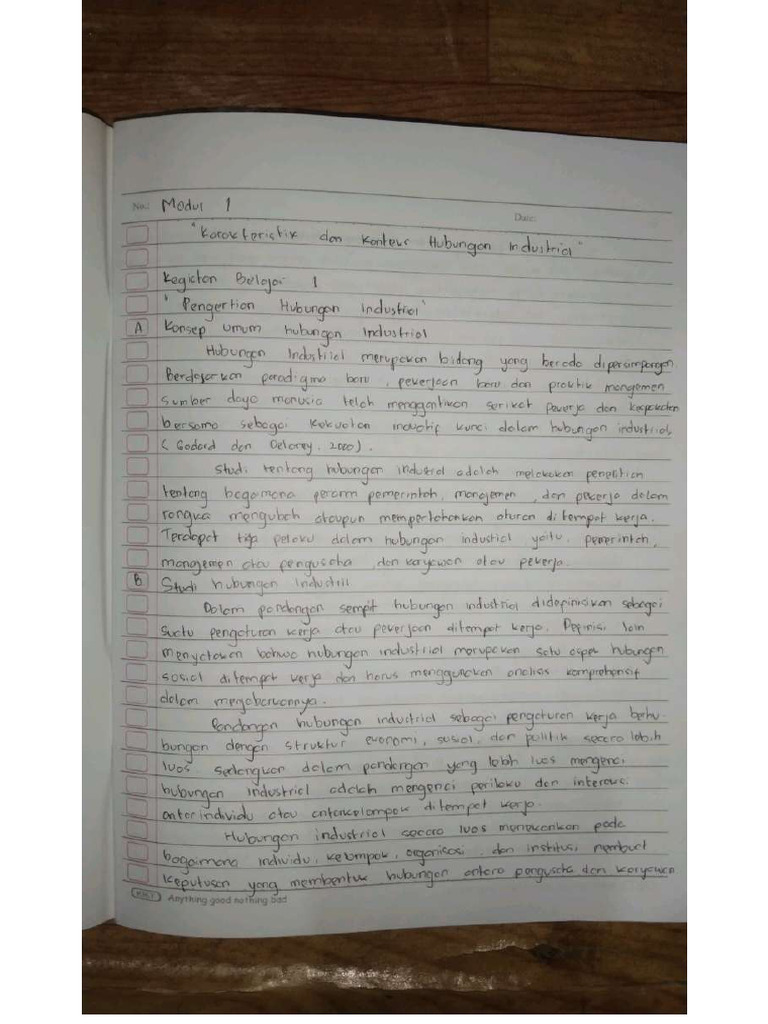 No.: Modul 1
Date:
"Karakteristik dan Konteks Hubungan Industrial"
Kegiatan Belajar 1
"Pengertian Hubungan Industrial"
A Konsep Umum hubungan Industrial
Hubungan Industrial merupakan bidang yang berada dipersimpangan
Berdasarkan paradigma baru, pekerjaan baru dan praktik manajemen
sumber daya manusia telah menggantikan serikat pekerja dan kesepakatan
bersama sebagai kekuatan inovatif kunci dalam hubungan industrial
(Godard dan Delaney, 2000).
Studi tentang hubungan industrial adalah melakukan penelitian
tentang bagaimana peran pemerintah, manajemen, dan pekerja dalam
rangka mengubah ataupun mempertahankan aturan di tempat kerja.
Terdapat tiga pelaku dalam hubungan industrial yaitu, pemerintah,
manajemen atau pengusaha, dan karyawan atau pekerja.
B Studi hubungan Industri
Dalam pandangan sempit hubungan industrial didepinisikan sebagai
suatu pengaturan kerja atau pekerjaan ditempat kerja. Depinisi lain
menyatakan bahwa hubungan industrial merupakan satu aspek hubungan
sosial ditempat kerja dan harus menggunakan analisis komprehensif
dalam
Pandangan hubungan industrial sebagai pengaturan kerja berhu-
bungan dengan struktur ekonomi, sosial, dan politik secara lebih
luas sedangkan dalam pandangan yang lebih luas mengenai
hubungan industrial adalah mengenai perilaku dan interaksi
antar individu atau antar kelompok ditempat kerja.
Hubungan industrial secara luas menekankan pada
bagaimana individu, kelompok, organisasi, dan institusi membuat
keputusan yang membentuk hubungan antara pengusaha dan karyawan
Anything good nothing bad